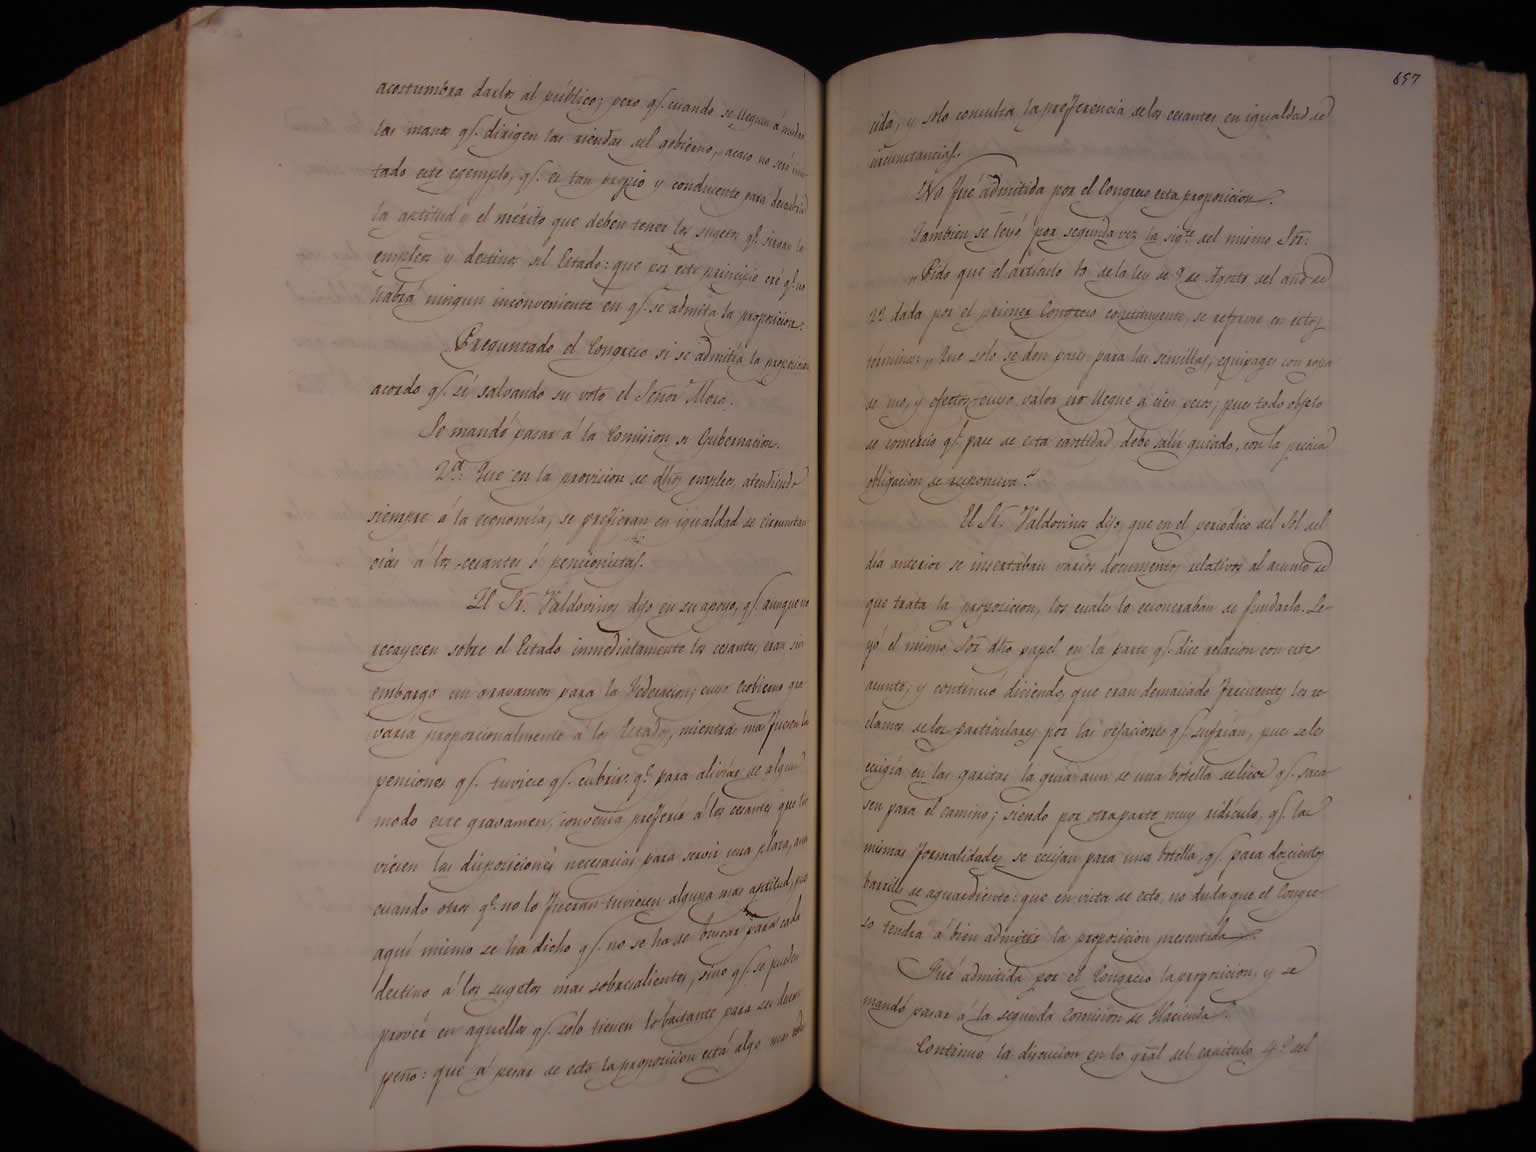 acostumbra darlos al público; pero qͤ. cuando se lleguen á mudar
las manos qͤ. dirigen las riendas del gobierno, acaso no será imi-
tado este egemplo, qͤ. es tan propio y conducente para descubrir
la aptitud y el mérito que deben tener los sugetos qͤ. sirvan los
empleos y destinos del Estado: que por este principio cré qͤ. no
habrá ningun inconveniente en qͤ. se admita la proposicion.
Preguntado el Congreso si se admitia la proposicion
acordó qͤ. sí, salvando su voto el Señor Mora.
Se mandó pasar á la Comision de Gubernacion.
2ª. Que en la provision de dhos empleos, atendiendo
siempre á la economía, se prefieran en igualdad de circunstan-
cias á los cesantes ó pensionistas.
El Sr. Valdovinos dijo en su apoyo, qͤ. aunque no
recayesen sobre el Estado inmediatamente los cesantes, eran sin
embargo un gravamen para la Federacion; cuyo Gobierno gra-
varía proporcionalmente á los Estados, mientras mas fuesen las
penciones qͤ. tuviese qͤ. cubrir: qͤ. para aliviar de algun
modo este gravamen, convenía preferir á los cesantes que tu-
viesen las disposiciones necesarias para servir una plaza, aun
cuando otros qͤ. no lo fueran tuviesen alguna mas aptitud, pues
aquí mismo se ha dicho qͤ. no se ha de buscar para cada
destino á los sugetos mas sobresalientes, sino qͤ. se pueden
proveer en aquellos qͤ. solo tienen lo bastante para su desem-
peño: que á pesar de esto la proposicion está algo mas
657
cida, y solo consulta la prefferencia de los cesantes en igualdad de
circunstancias.
No fué admitida por el Congreso esta proposicion.
Tambien se leyó por segunda vez la sigᵗᵉ. del mismo Sr.
"Pido que el artículo 10 de la ley de 9 de Agosto del año de
22 dada por el primer Congreso constituyente, se reforme en estos
términos: "Que solo se den pases para las semillas, equipages con ropa
de uso, y efectos cuyo valor no llegue á cien pesos; pues todo objeto
de comercio qͤ. pase de esta cantidad, debe salir guiado, con la precisa
obligacion de responsiva."
El Sr. Valdovinos dijo, que en el periódico del Sol del
día anterior se insertaban varios documentos relativos al asunto de
que trata la proposicion, los cuales lo escusaban de fundarla. Le-
yó el mismo Sor dho papel en la parte qͤ. dice relacion con este
asunto; y continuó diciendo, que eran demasiado frecuentes los re-
clamos de los particulares por las vejaciones qͤ. sufrían, pues se les
ecsigía en las garitas la guía aun de una botella de licor qͤ. saca-
sen para el camino; siendo por otra parte muy ridículo, qͤ. las
mismas formalidades se ecsijan para una botella, qͤ. para doscientos
barriles de aguardiente: que en vista de esto, no duda que el Congre-
so tendrá á bien admitir la proposicion presentada.
Fué admitida por el Congreso la proposicion, y se
mandó pasar á la segunda Comision de Hacienda.
Continuó la discusion en lo gral del capítulo 4º. del